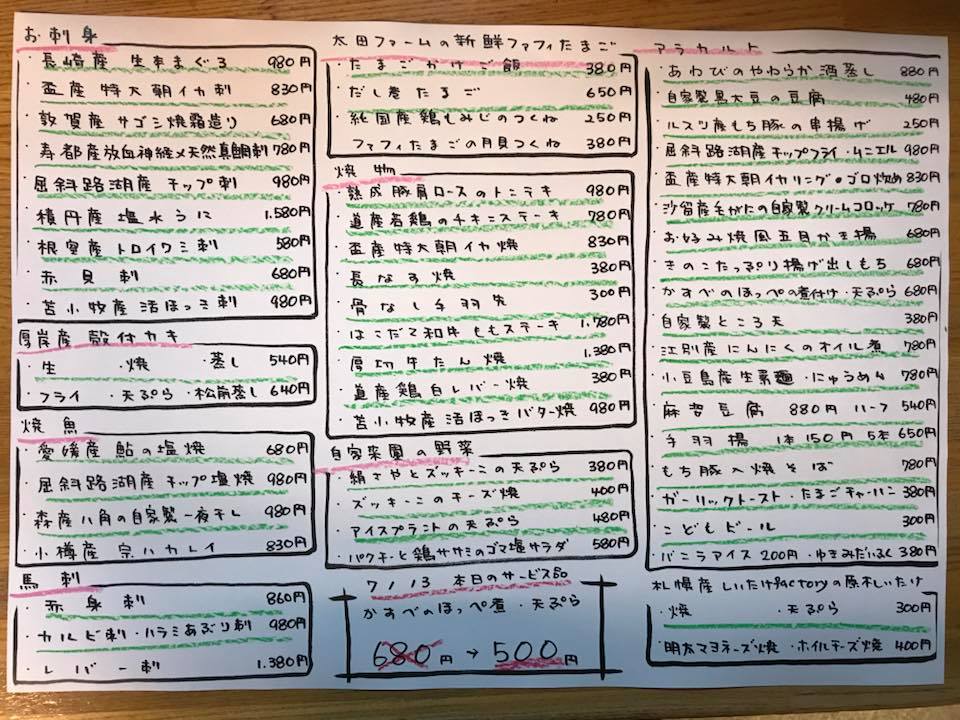 お刺身
・長崎産 生本まぐろ 980円
・盃産 特大朝イカ刺 830円
・敦賀産 サゴシ焼霜造り 680円
・寿都産放血神経〆天然真鯛刺 780円
・屈斜路湖産 チップ刺 980円
・積丹産 塩水うに 1.580円
・根室産 トロイワシ刺 580円
・赤貝刺 680円
・苫小牧産 活ほっき刺 980円
厚岸産 殻付カキ
・生 ・焼 ・蒸し 540円
・フライ ・天ぷら ・松前蒸し 640円
焼魚
・愛媛産 鮎の塩焼 680円
・屈斜路湖産 チップ塩焼 980円
・森産八角の自家製一夜干し 980円
・小樽産 宗八カレイ 830円
馬刺
・赤身刺 860円
・カルビ刺・ハラミあぶり刺 980円
・レバー刺 1.380円
太田ファームの新鮮ファフィたまご
・たまごかけご飯 380円
・だし巻たまご 650円
・純国産鶏もみじのつくね 250円
ファフィたまごの月見つくね 380円
焼物
・熟成豚肩ロースのトンテキ 980円
・道産若鶏のチキンステーキ 980円
・盃産特大朝イカ焼 830円
・長なす焼 380円
・骨なし手羽先 300円
・はこだて和牛ももステーキ 1.780円
・厚切牛たん焼 1.380円
・道産鶏白レバー焼 380円
・苫小牧産活ほっきバター焼 980円
自家菜園の野菜
・絹さやとズッキーニの天ぷら 380円
・ズッキーニのチーズ焼 400円
・アイスプラントの天ぷら 480円
・パクチーと鶏ササミのゴマ塩サラダ 580円
7/13 本日のサービス品
かすべのほっぺ煮・天ぷら
680円→500円
アラカルト
・あわびのやわらか酒蒸し 880円
・自家製黒大豆の豆腐 480円
・ルスツ産もち豚の串揚げ 250円
・屈斜路湖産チップフライ・ムニエル 980円
・盃産特大朝イカリング・ゴロ炒め 830円
・沙留産毛がたの自家製クリームコロッケ 780円
・お好み焼風五目かき揚 680円
・きのこたっぷり揚げ出しもち 680円
・かすべのほっぺの煮付け・天ぷら 680円
・自家製ところ天 380円
・江別産にんにくのオイル煮 780円
・小豆島産生素麺・にゅうめん 780円
・麻婆豆腐 880円 ハーフ 540円
・手羽揚 1本150円 5本650円
・もち豚入焼そば 780円
・ガーリックトースト・たまごチャーハン 380円
・こどもビール 300円
・バニラアイス 200円・ゆきみだいふく 380円
札幌産しいたけfactoryの原木しいたけ
・焼 ・天ぷら 300円
・明太マヨネーズ焼・ホイルチーズ焼 400円